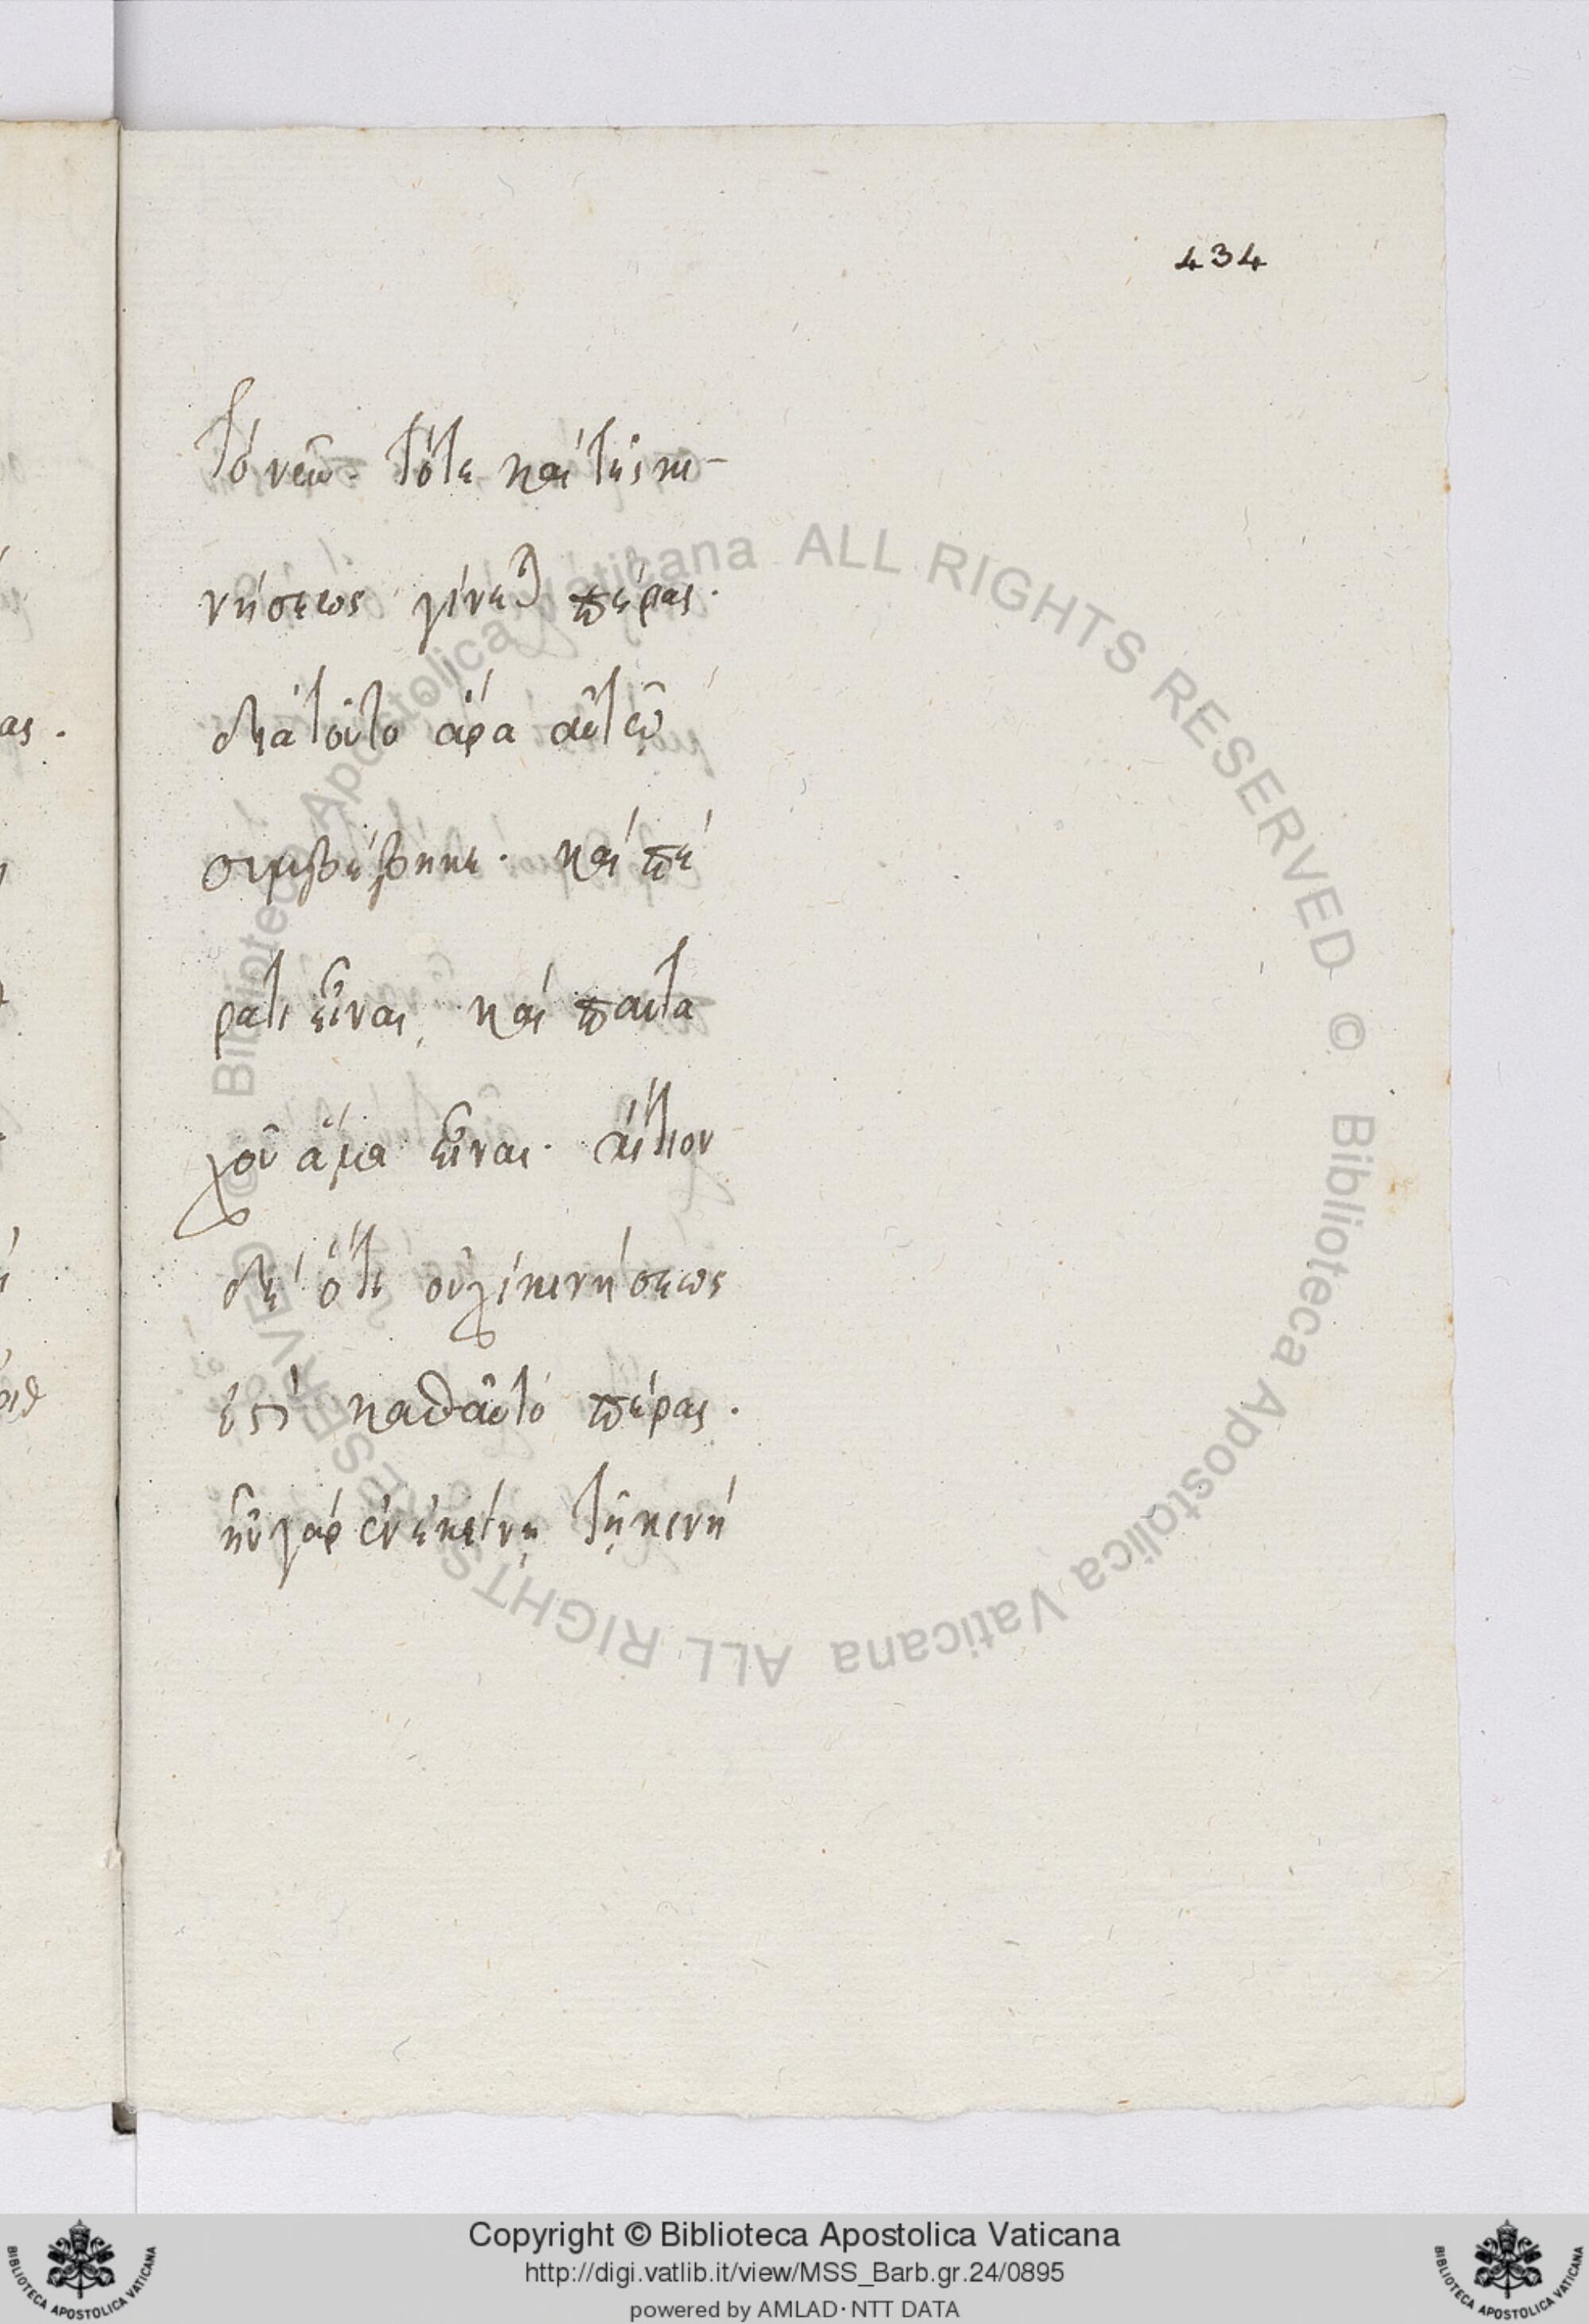 434
τὸ νεῦ. τότε καὶ τῆς κι-
νήσεως γίνεται πέρας.
διὰ τοῦτο ἄρα αὐτῷ
συμβέβηκε. καὶ πέ
ρατι εἶναι, καὶ παντα
χοῦ ἅμα εἶναι. αἴτιον
δὲ ὅτι οὐχὶ κινήσεως
ἐστὶ καθαὐτὸ πέρας.
ἦν γὰρ ἐν ἐκείνῃ τῇ κινή
© Biblioteca Apostolica Vaticana ALL RIGHTS RESERVED © Biblioteca Apostolica Vaticana ALL RIGHTS RESERVED
Copyright © Biblioteca Apostolica Vaticana
http://digi.vatlib.it/view/MSS_Barb.gr.24/0895
powered by AMLAD·NTT DATA
BIBLIOTECA APOSTOLICA VATICANA
BIBLIOTECA APOSTOLICA VATICANA